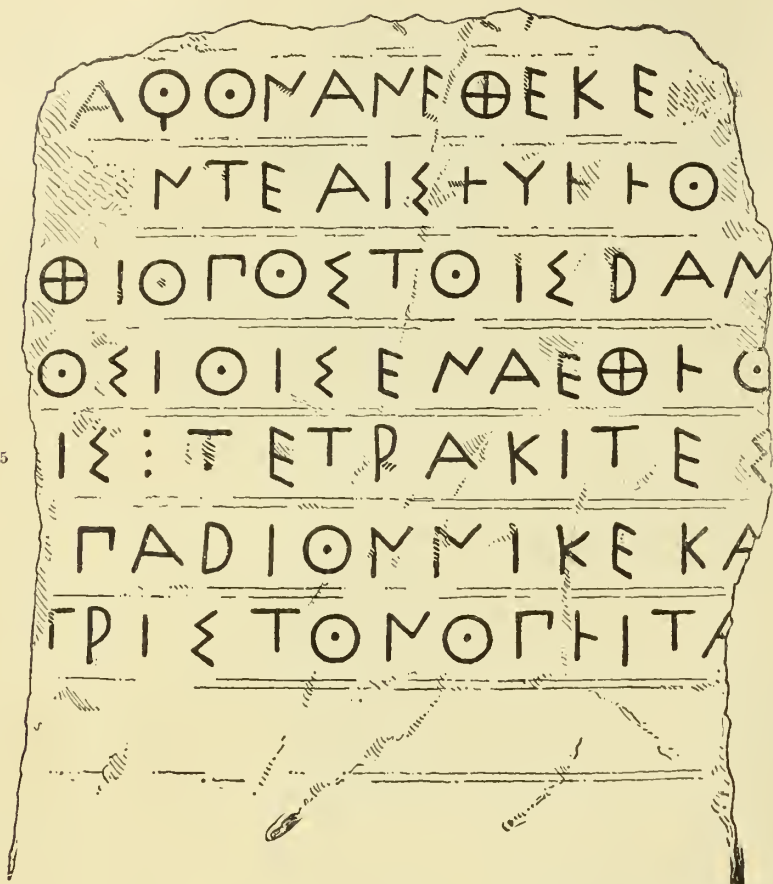 ΑϘΟΝΑΝΕΘΕΚΕ
ΝΤΕΑΙΣΧΥΛΛΟ
ΘΙΟΠΟΣΤΟΙΣΔΑΜ
ΟΣΙΟΙΣΕΝΑΕΘΛΟ
5 ΙΣ⋮ΤΕΤΡΑΚΙΤΕΣ
ΠΑΔΙΟΝΝΙΚΕΚΑ
ΤΡΙΣΤΟΝΟΠΛΙΤΑ